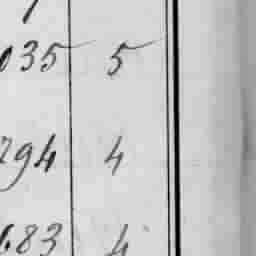 035 5
294 4
683 4